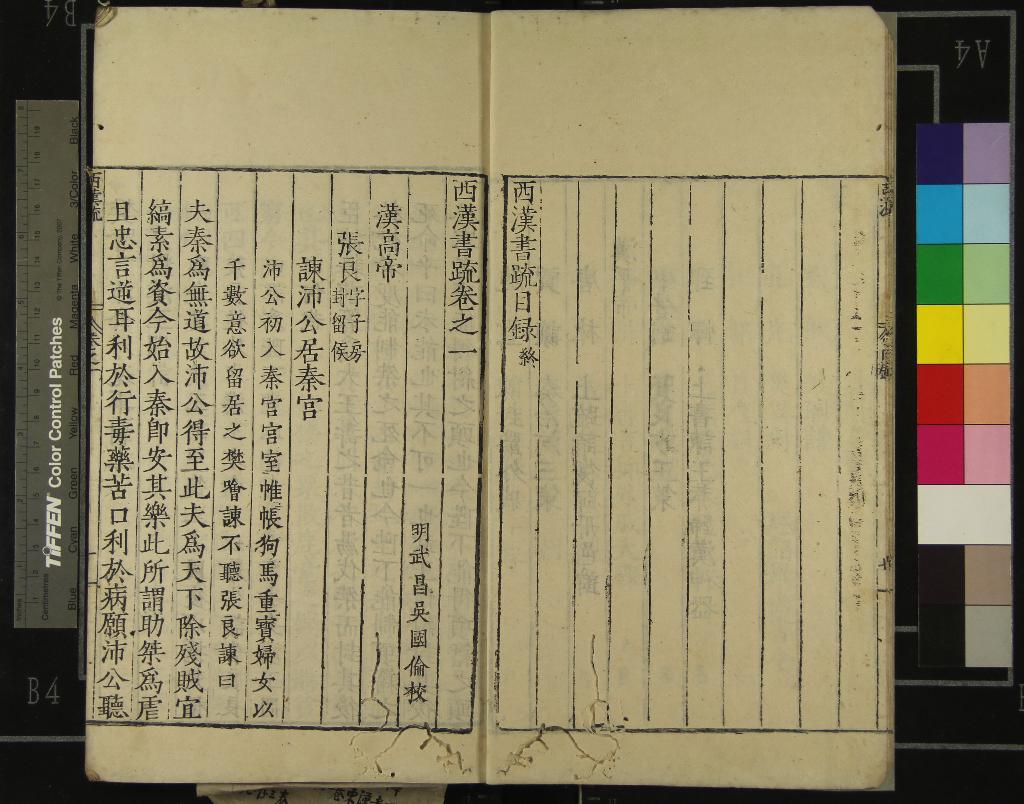 西漢書疏目錄終
西漢書疏卷之一
明武昌吳國倫校
漢高帝
張良字子房封留侯
諫沛公居秦宮
沛公初入秦宮宮室帷帳狗馬重寶婦女以
千數意欲留居之樊噲諫不聽張良諫曰
夫秦爲無道故沛公得至此夫爲天下除殘賊宜
縞素爲資今始入秦卽安其樂此所謂助桀爲虐
且忠言逆耳利於行毒藥苦口利於病願沛公聽
TIFFEN Color Control Patches
© The Tiffen Company, 2007
Inches
Centimetres
Blue
Cyan
Green
Yellow
Red
Magenta
White
3/Color
Black
B4
B4
A4